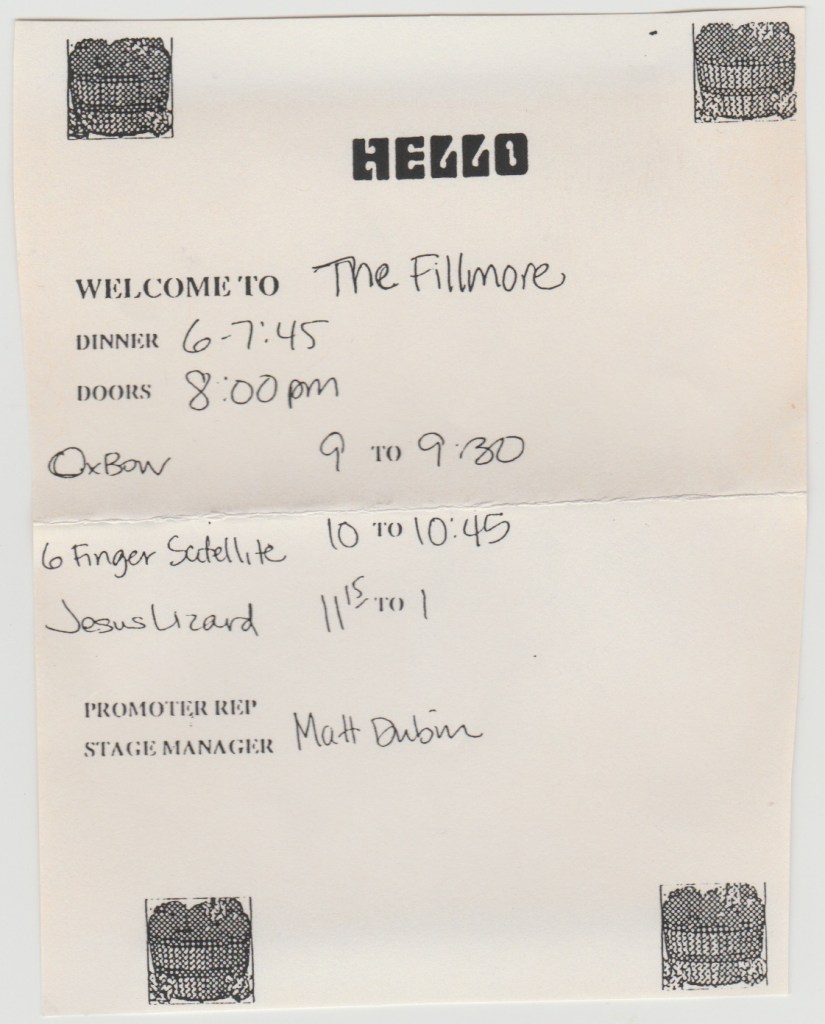 HELLO
WELCOME TO The Fillmore
DINNER 6-7:45
DOORS 8:00pm
OxBow 9 TO 9:30
6 Finger Satellite 10 TO 10:45
Jesus Lizard 11 15 TO 1
PROMOTER REP
STAGE MANAGER Matt Dubin